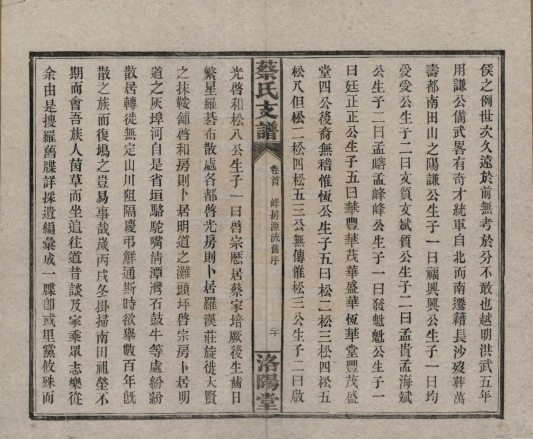 侯之例世次久遠於前無考於分不敢也越明洪武五年
用謙公備武畧有奇才統軍自北而南遷藉長沙歿葬萬
壽都南田山之陽謙公生子一曰福興興公生子一曰均
愛愛公生子二曰文質文斌質公生子二曰孟貴孟海斌
公生子二曰孟㟧孟峰峰公生子一曰發魁魁公生子一
曰廷正正公生子五曰華豐華茂華盛華恆華堂豐茂盛
堂四公後裔無稽惟恆公生子五曰松二松三松四松五
松八但松二松四松五三公無傳惟松三公生子二曰啟
蔡氏支譜
卷首
峰房源流舊序
二十
洛陽堂
光啓和松八公生子一曰啓宗歷居蔡家培厥後生齒日
繁星羅碁布散處各都啓光房則卜居羅漢莊旋徙大賢
之抹鞍鋪啓和房則卜居明道之灘頭坪啓宗房卜居明
道之灰埠河自是省垣駱駝嘴清潭灣石鼓牛等處紛紛
散居轉徙無定山川阻隔慶弔鮮通斯時欲舉數百年旣
散之族而復塢之豈易事哉歲丙戌冬掛掃南田祖塋不
期而會吾族人茵草而坐追往道昔談及家乘眾志樂從
余由是搜羅舊牒詳採遺編彙成一牒卽或里黨攸殊而